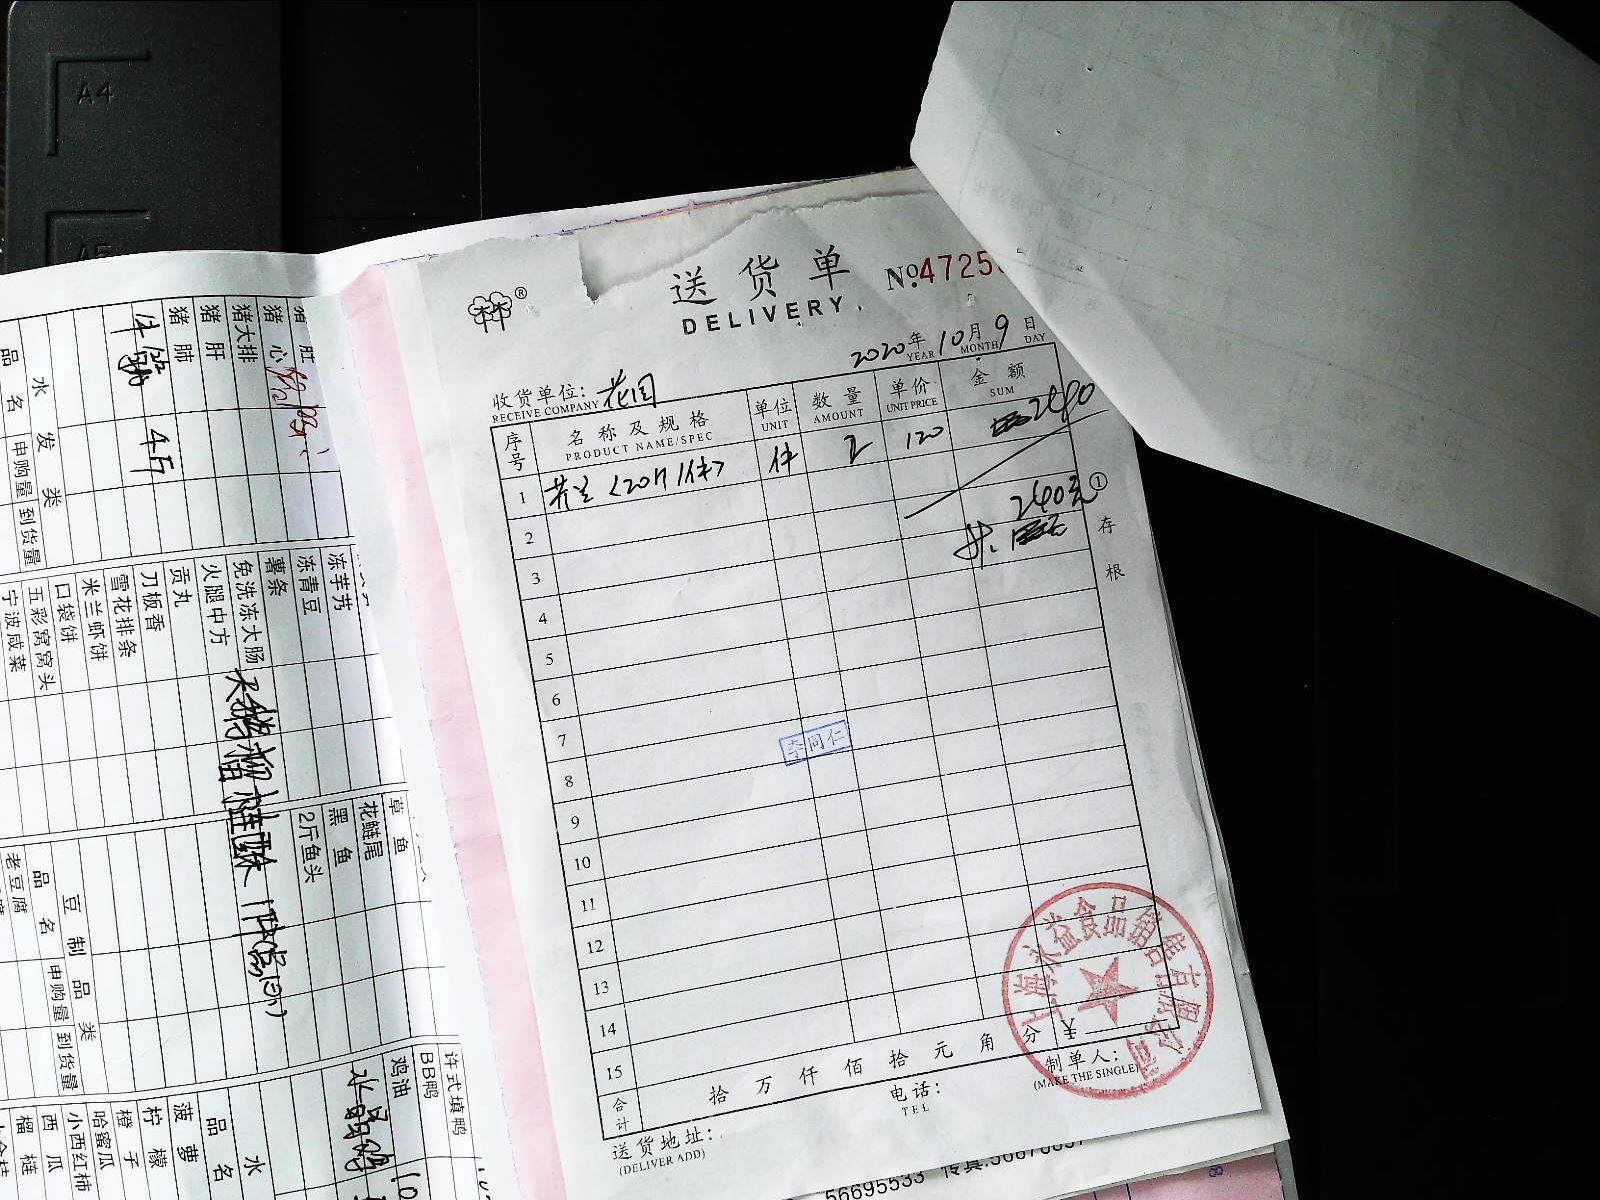 A4
A5
送货单
DELIVERY.
№47250
2020年10月9日
YEAR MONTH DAY
收货单位：花园
RECEIVE COMPANY
序号 名称及规格 单位 数量 单价 金额
PRODUCT NAME/SPEC UNIT AMOUNT UNIT PRICE SUM
1 芥兰(20斤/件) 件 2 120 240
2 共. 240元
3
4
5
6
7
李同仁
8
9
10
11
12
13
14
15
合计 拾 万 仟 佰 拾 元 角 分 ¥
送货地址：
(DELIVER ADD)
电话：
TEL
制单人：
(MAKE THE SINGLE)
①存根
上海永益食品销售有限公司
56695533 传真:
猪肚
猪心
猪大排
猪肝
猪肺
4斤
水发类
品名 申购量 到货量
冻芋艿
冻青豆
薯条
免洗冻大肠
火腿中方
贡丸
刀板香
雪花排条
米兰虾饼
口袋饼
五彩窝窝头
宁波咸菜
草鱼
花鲢尾
黑鱼
2斤鱼头
豆制品类
品名 申购量 到货量
老豆腐
许式填鸭
BB鸭
鸡油
水
品名
菠萝
柠檬
橙子
哈蜜瓜
小西红柿
西瓜
榴梿